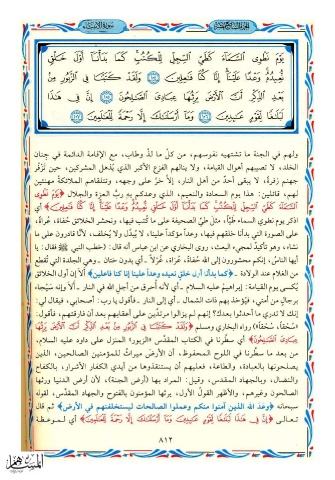 الجزء السابع عشر
سورة الأنبياء
يَوْمَ نَطْوِى ٱلسَّمَآءَ كَطَىِّ ٱلسِّجِلِّ لِلْكُتُبِ كَمَا بَدَأْنَآ أَوَّلَ خَلْقٍ
نُّعِيدُهُۥ وَعْدًا عَلَيْنَآ إِنَّا كُنَّا فَٰعِلِينَ ١٠٤ وَلَقَدْ كَتَبْنَا فِى ٱلزَّبُورِ مِنْ
بَعْدِ ٱلذِّكْرِ أَنَّ ٱلْأَرْضَ يَرِثُهَا عِبَادِىَ ٱلصَّٰلِحُونَ ١٠٥ إِنَّ فِى هَٰذَا
لَبَلَٰغًا لِّقَوْمٍ عَٰبِدِينَ ١٠٦ وَمَآ أَرْسَلْنَٰكَ إِلَّا رَحْمَةً لِّلْعَٰلَمِينَ ١٠٧
ولهم في الجنة ما تشتهيه نفوسهم، من كل ما لذ وطاب، مع الإقامة الدائمة في جنان
الخلد، لا تصيبهم أهوال القيامة، ولا ينالهم الفزع الأكبر الذي يُذهل المشركين، حين تزفر
جهنم زفرة، لا يبقى أحد من أهل النار، إلا خرّ على وجهه، وتتلقاهم الملائكة مهنئين
لهم، قائلين: هذا يوم السعادة والنعيم، الذي وعدكم به ربّ العزة والجلال ﴿يَوْمَ نَطْوِى
ٱلسَّمَآءَ كَطَىِّ ٱلسِّجِلِّ لِلْكُتُبِ كَمَا بَدَأْنَآ أَوَّلَ خَلْقٍ نُّعِيدُهُۥ وَعْدًا عَلَيْنَآ إِنَّا كُنَّا فَٰعِلِينَ﴾ أي
اذكر يوم نطوي السماء طيًّا، مثل طيّ الصحيفة على ما كُتب فيها، ونحشر الخلائق حُفاة، عُراة،
على الصورة التي بدأنا خلقهم فيها، وعدًا مؤكدًا علينا، لا يُبدّل ولا يُخلف، لأنّا قادرون على ما
نشاء، وهو تأكيدٌ لمجيء البعث، روى البخاري عن ابن عباس أنه قال: (خطب النبي ﷺ فقال: يا
أيها الناس، إنكم محشورون إلى الله حُفاةً، عُراةً، غُرْلاً ـ أي بدون ختان ـ وهي الجلدة التي تُقطع
من الغلام عند الولادة ـ ﴿كما بدأنا أول خلق نعيده وعداً علينا إنا كنا فاعلين﴾ ألا إن أول الخلائق
يُكسى يوم القيامة: إبراهيم عليه السلام ـ أي لأنه أُحرق من أجل الله في النار ـ ألا وإنه سيُجاء
برجال من أمتي، فيؤخذ بهم ذات الشمال ـ أي إلى النار ـ فأقول يا رب: أصحابي، فيقال لي:
إنك لا تدري ما أحدثوا بعدك؟ إنهم لم يزالوا مرتدّين على أعقابهم بعد أن فارقتهم، فأقول:
«سُحقًا، سُحقًا») رواه البخاري ومسلم ﴿وَلَقَدْ كَتَبْنَا فِى ٱلزَّبُورِ مِنْ بَعْدِ ٱلذِّكْرِ أَنَّ ٱلْأَرْضَ يَرِثُهَا
عِبَادِىَ ٱلصَّٰلِحُونَ﴾ أي سطّرنا في الكتاب المقدّس «الزبور» المنزل على داود عليه السلام،
من بعد ما سطّرنا في اللوح المحفوظ، أن الأرض ميراثٌ للمؤمنين الصالحين، الذين
يصلحونها بالعبادة، والطاعة، فعليهم أن يستنقذوها من أيدي الكفار الأشرار، بالكفاح
والنضال، وبالجهاد المقدس، وقيل: المراد بها (أرض الجنة)، لأن أرض الدنيا ورثها
الصالحون وغيرهم، والأظهر القولُ الأول، يرثها المؤمنون بالفتوح والجهاد المقدّس، لقوله
سبحانه ﴿وعد الله الذين آمنوا منكم وعملوا الصالحات ليستخلفنهم في الأرض﴾ ثم قال
تعالى ﴿إِنَّ فِى هَٰذَا لَبَلَٰغًا لِّقَوْمٍ عَٰبِدِينَ وَمَآ أَرْسَلْنَٰكَ إِلَّا رَحْمَةً لِّلْعَٰلَمِينَ﴾ أي لموعظة
٨١٢